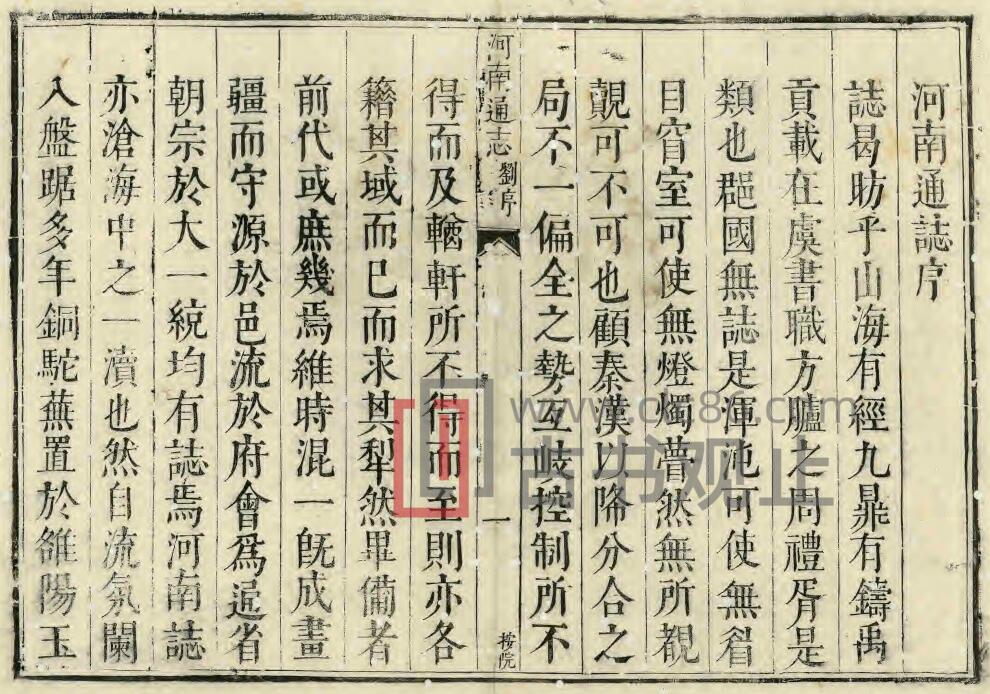 河南通誌序
誌曷昉乎山海有經九鼎有鑄禹
貢載在虞書職方臚之周禮胥是
類也郡國無誌是渾沌可使無眉
目窅室可使無燈燭瞢然無所覩
覿可不可也顧秦漢以降分合之
局不一偏全之勢互岐控制所不
河南通志
劉序
一
按院
得而及輶軒所不得而至則亦各
籍其域而已而求其犁然畢備者
前代或庶幾焉維時混一旣成畫
疆而守源於邑流於府會爲通省
朝宗於大一統均有誌焉河南誌
亦滄海中之一瀆也然自流氛闌
入盤踞多年銅駝蕪置於雒陽玉
古书观止